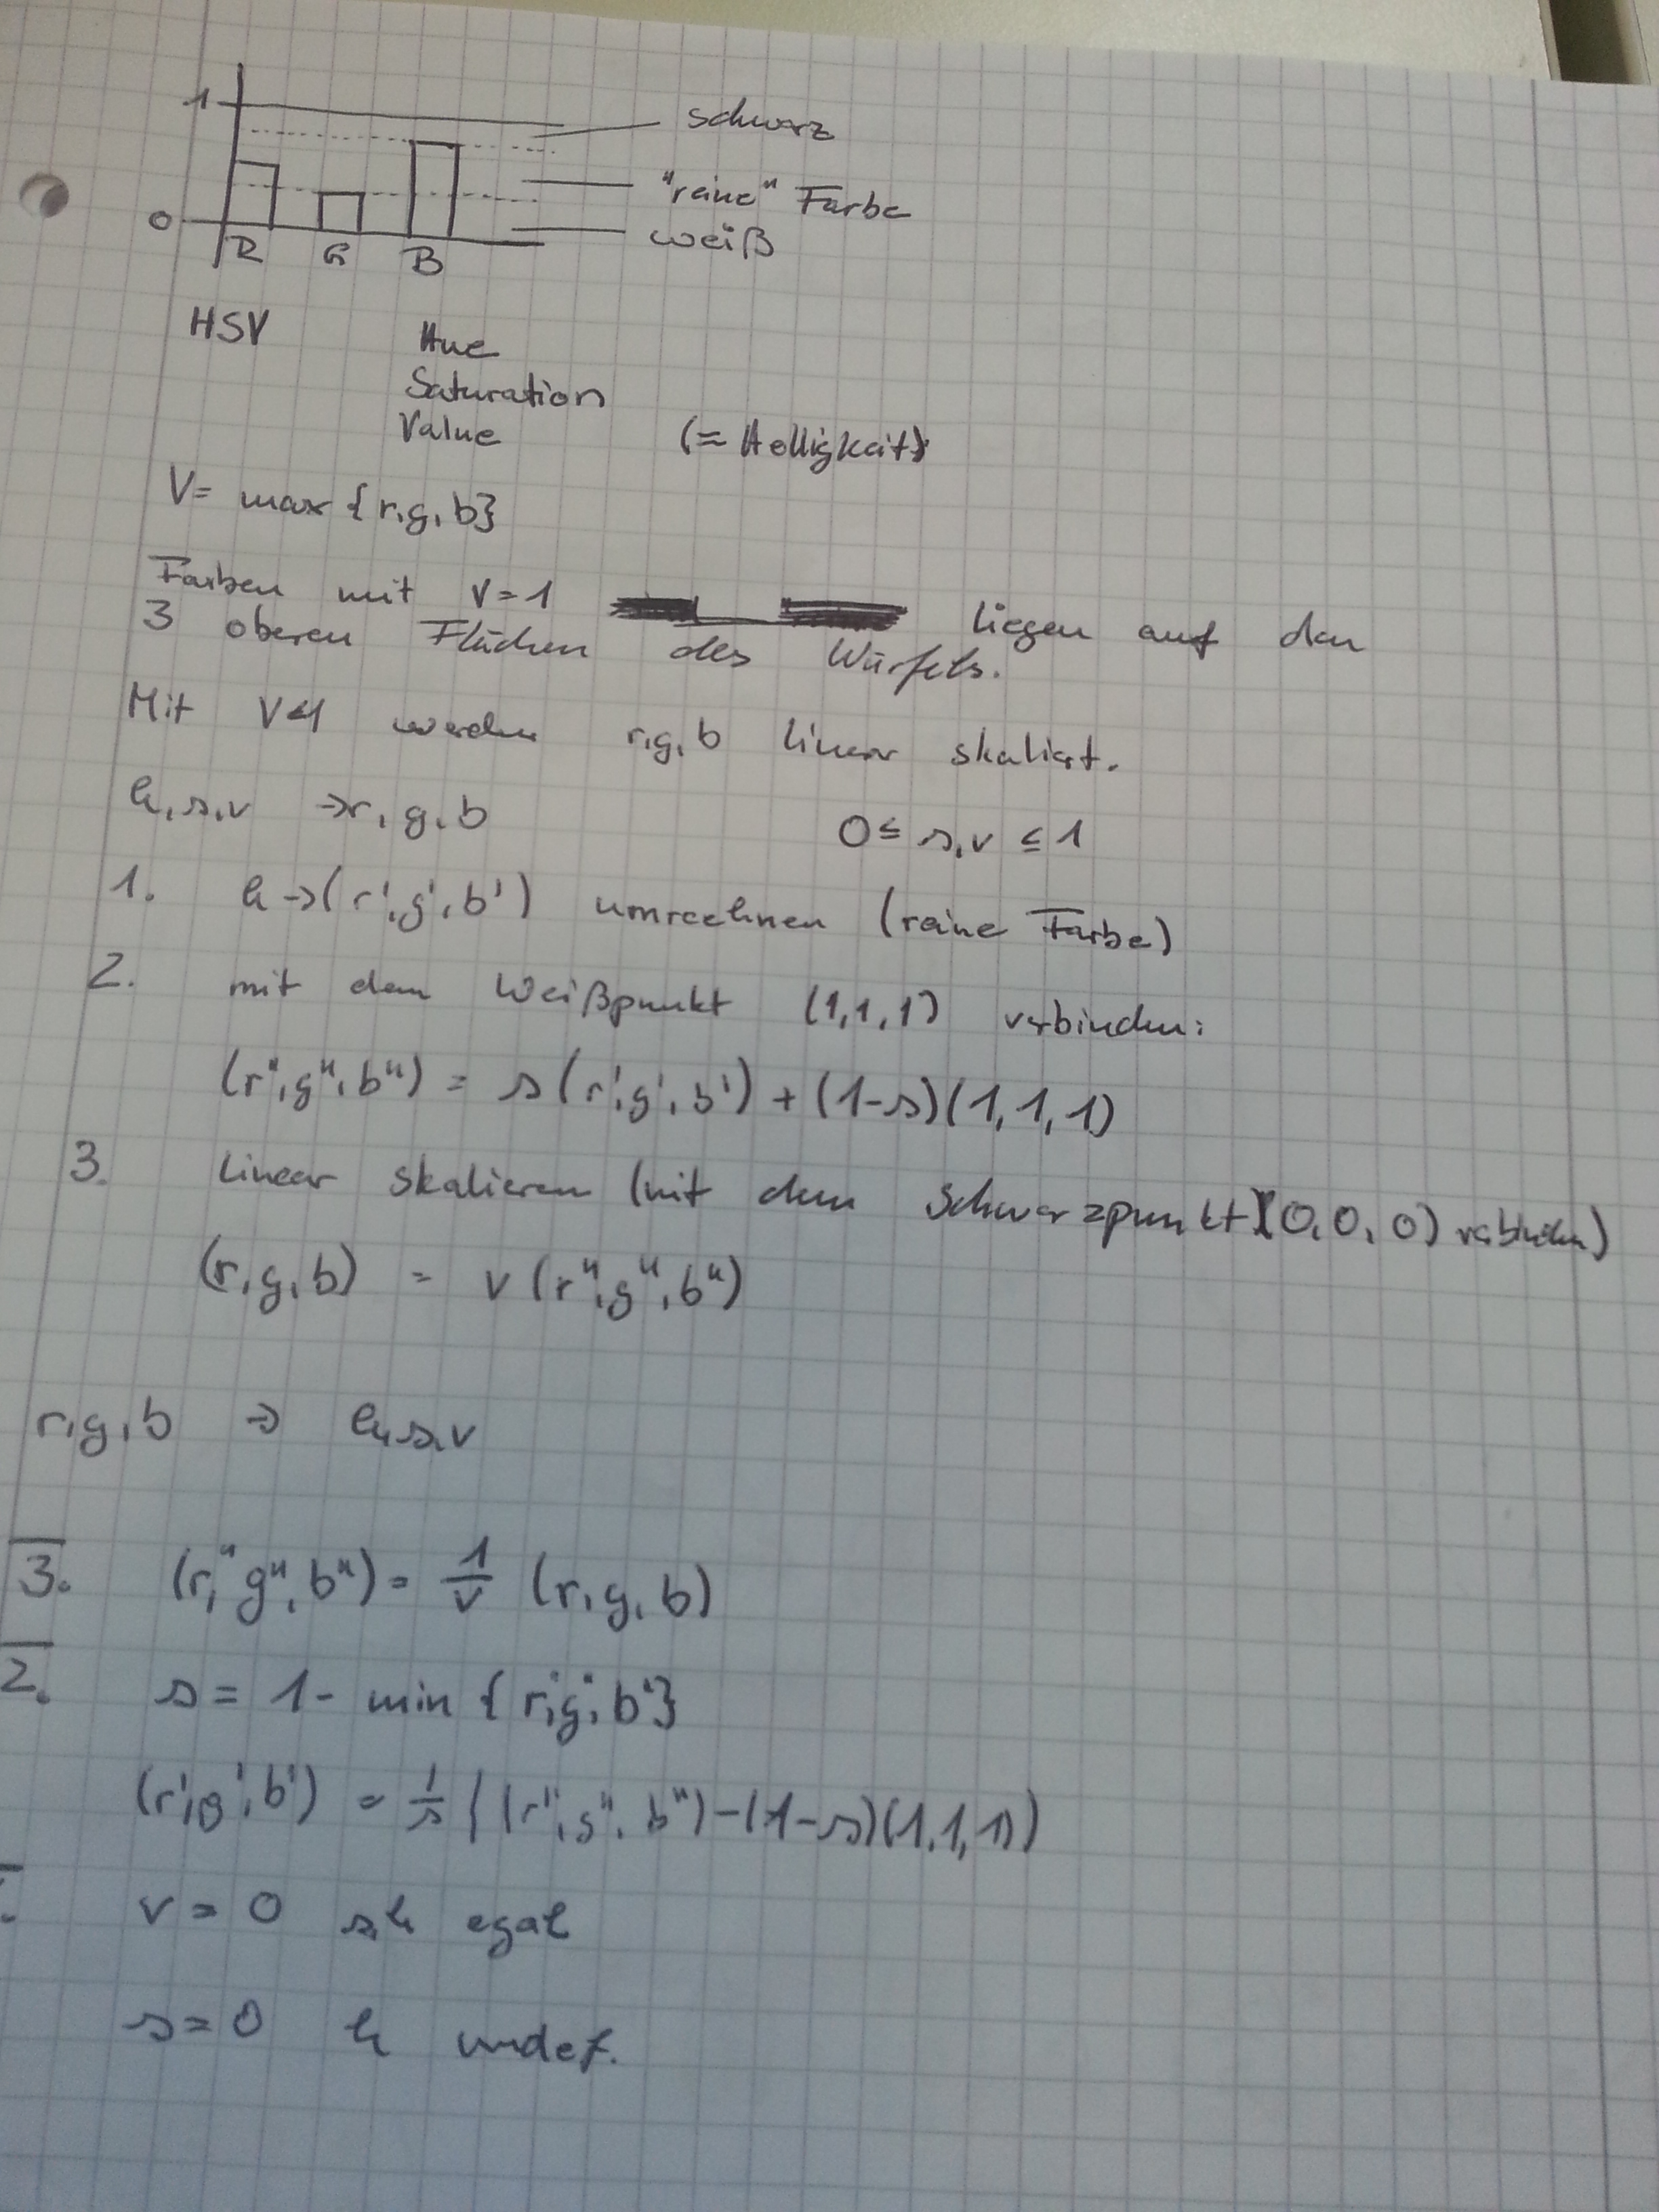 1
schwarz
"reine" Farbe
0
weiß
R G B
HSV Hue
Saturation
Value (= Helligkeit)
V= max {r,g,b}
Farben mit V=1 liegen auf den
3 oberen Flächen des Würfels.
Mit V<1 werden r,g,b linear skaliert.
h,s,v →r,g,b 0≤ s,v ≤1
1. h→(r',g',b') umrechnen (reine Farbe)
2. mit dem Weißpunkt (1,1,1) verbinden:
(r",g",b") = s(r',g',b')+(1-s)(1,1,1)
3. linear skalieren (mit dem Schwarzpunkt (0,0,0) verbinden)
(r,g,b) = v(r",g",b")
r,g,b → h,s,v
3. (r,"g",b") = 1/v (r,g,b)
2. s = 1- min {r",g",b"}
(r',g',b') = 1/s ((r",g",b")-(1-s)(1,1,1))
v = 0 s,h egal
s=0 h undef.